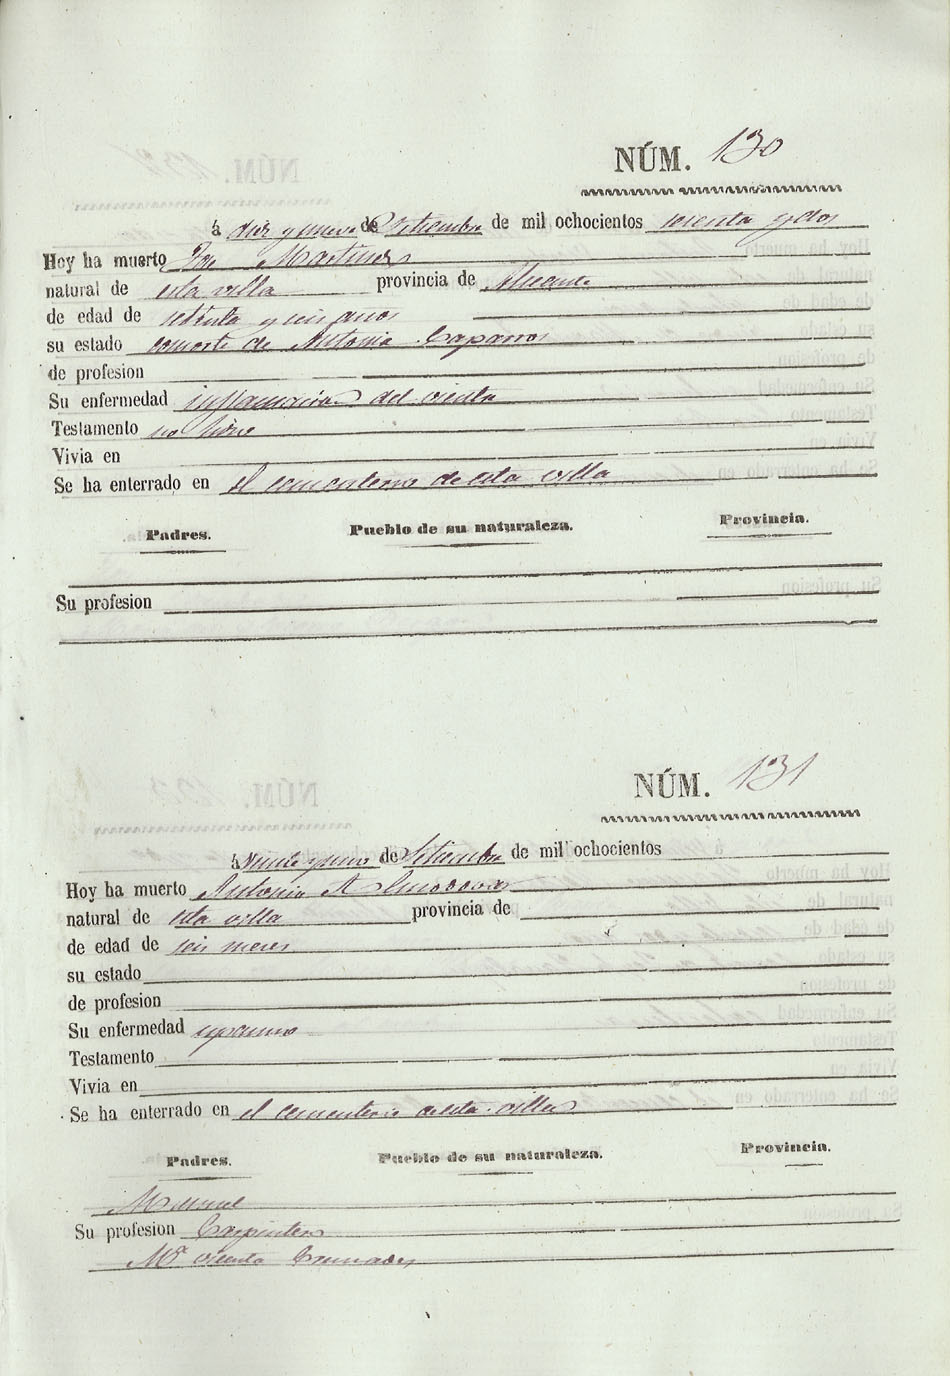 NÚM. 130
á diez y nueve de Setiembre de mil ochocientos sesenta y dos
Hoy ha muerto Jose Martinez
natural de esta villa provincia de Alicante
de edad de setenta y seis años
su estado consorte de Antonia Caparros
de profesion
Su enfermedad inflamacion del vientre
Testamento no hizo
Vivia en
Se ha enterrado en el cementerio de esta villa
Padres. Pueblo de su naturaleza. Provincia.
Su profesion
NÚM. 131
á veinte y uno de Setiembre de mil ochocientos
Hoy ha muerto Antonio
natural de esta villa provincia de
de edad de seis meses
su estado
de profesion
Su enfermedad
Testamento
Vivia en
Se ha enterrado en el cementerio de esta villa
Padres. Pueblo de su naturaleza. Provincia.
Manuel
Su profesion Carpintero
Mª Vicenta